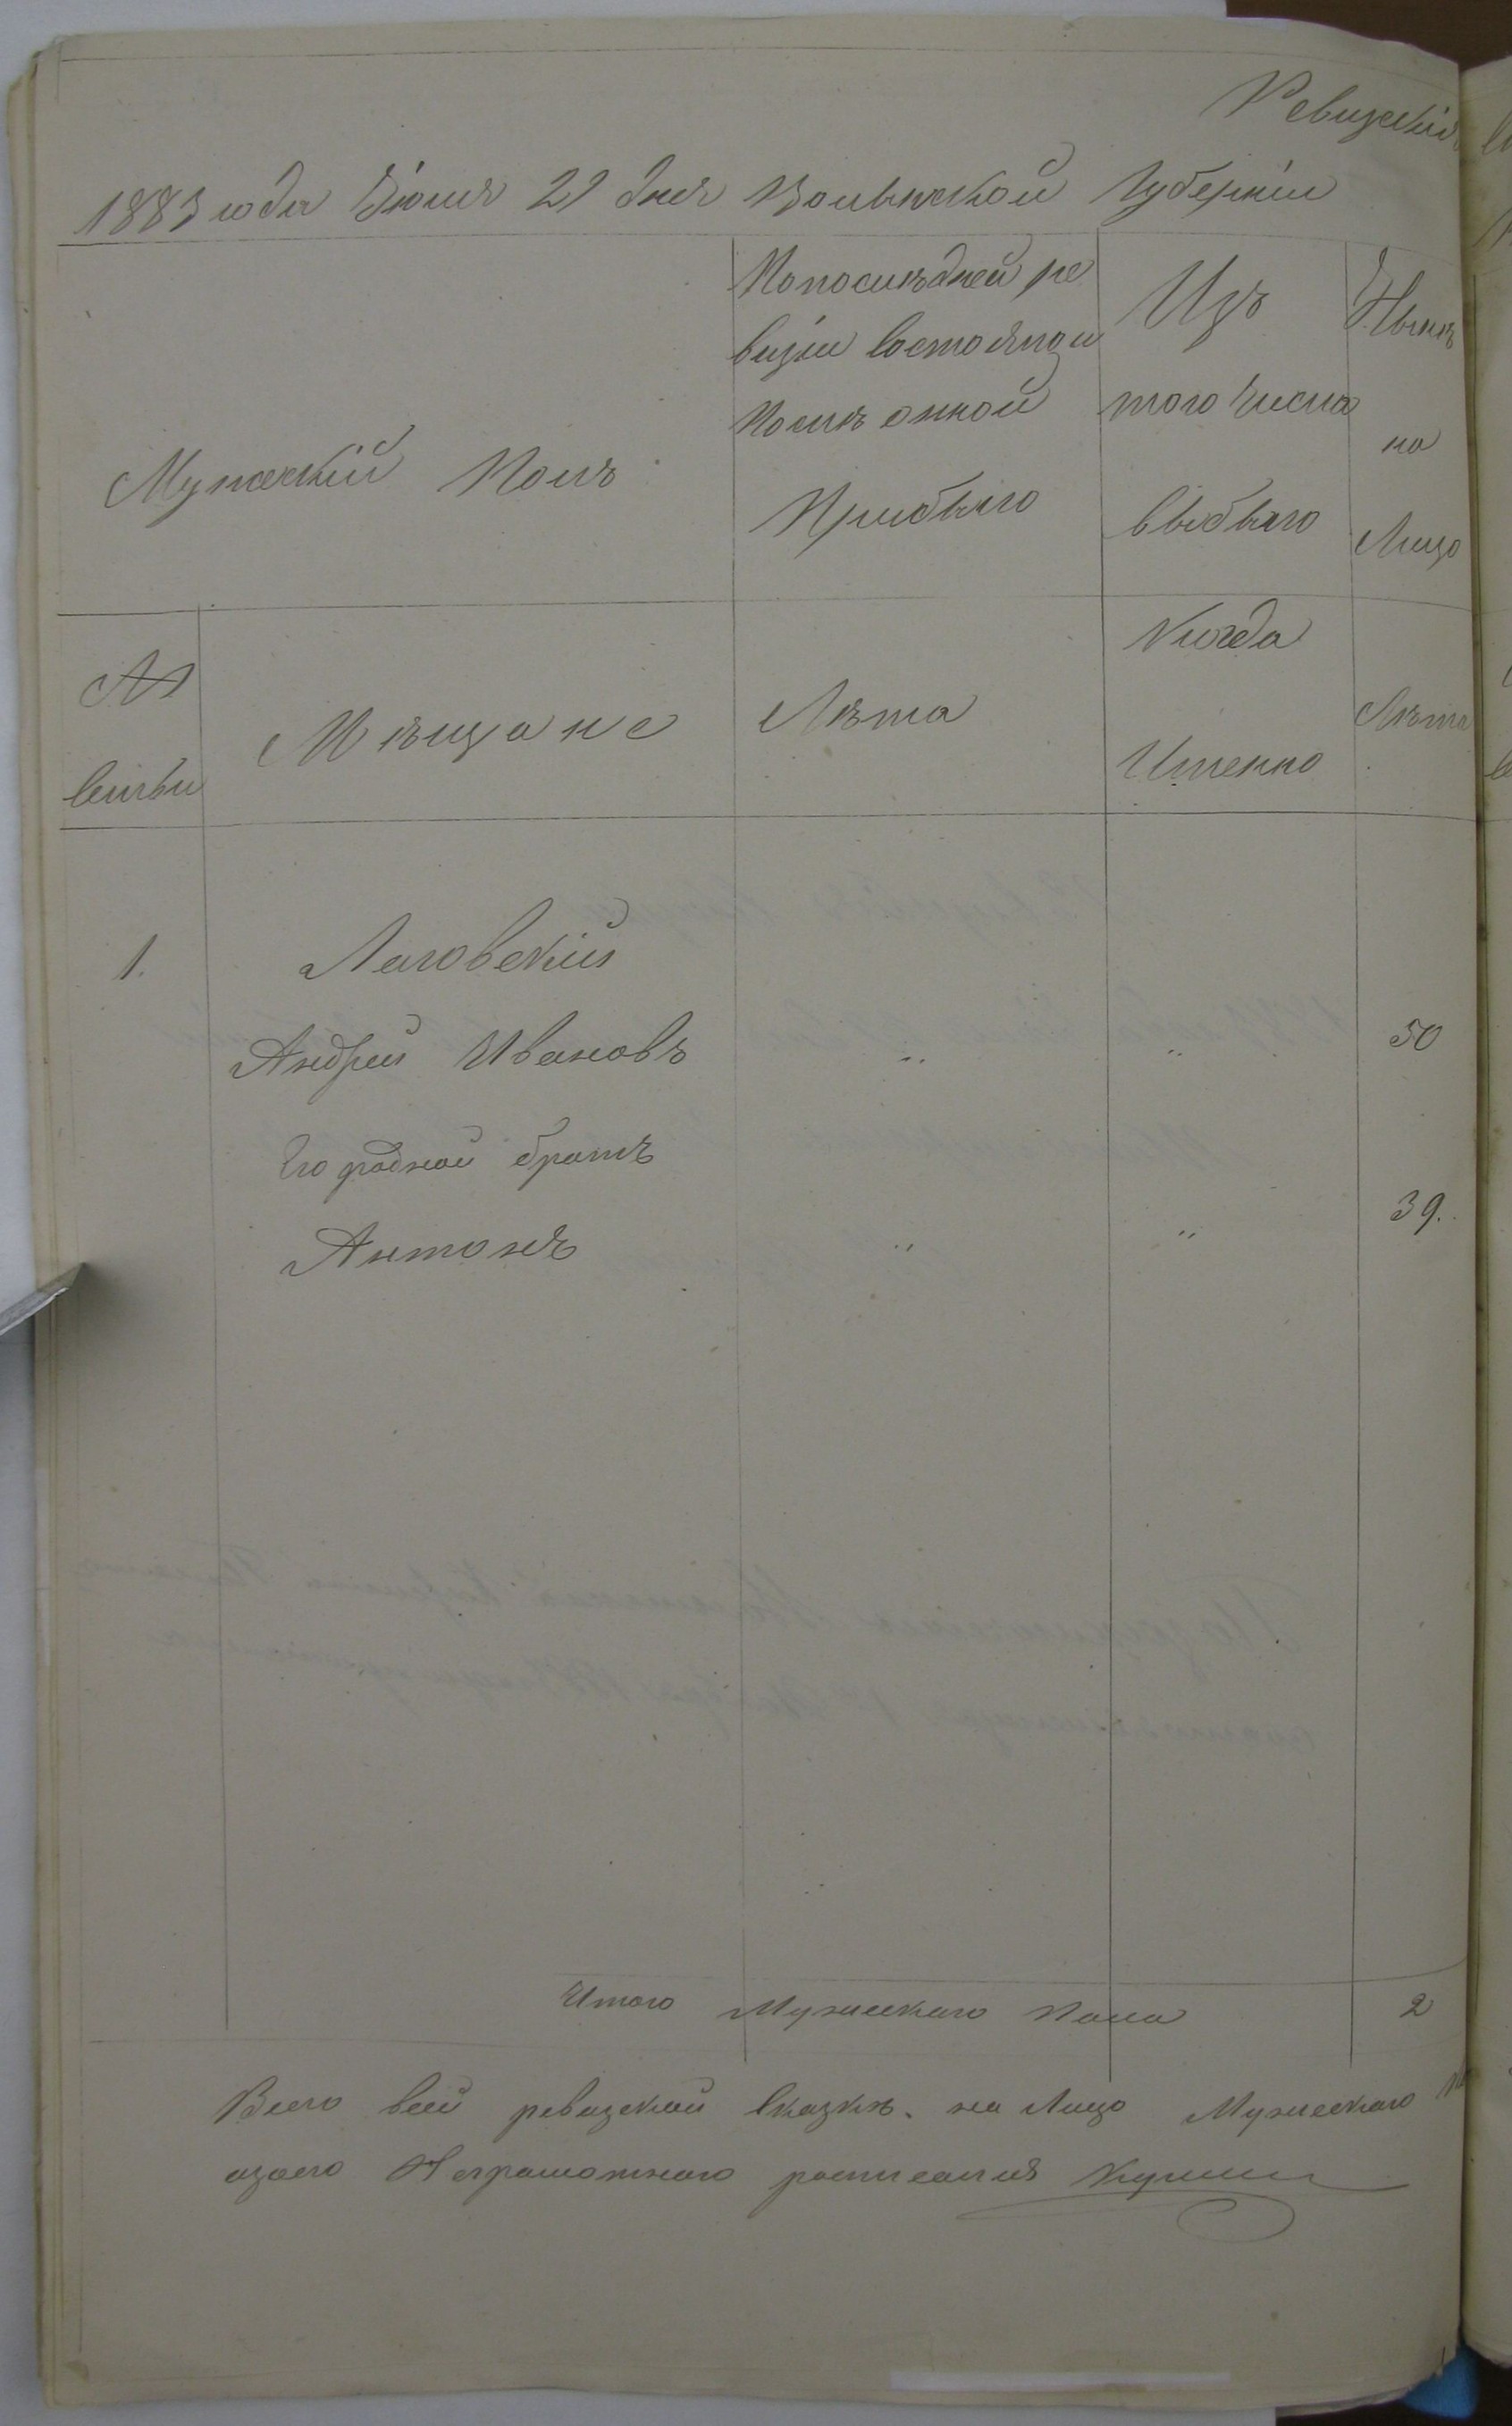 Ревизскія
1883 года Іюля 29 дня Волынской Губерніи
Мужескій Полъ
По послѣдней ре
визіи Состояло и
Послѣ оной
Прибыло
Изъ
того Числа
выбыло
Нынѣ
на
Лицо
№
Семьи
Мѣщане
Лѣта
Когда
Именно
Лѣта
1.
Лаговскій
Андрей Ивановъ " " 50
Его родной братъ
Антонъ " " 39.
Итого Мужескаго Пола 2
Всего всей ревизской Сказкѣ. на Лицо Мужескаго
а за его Неграмотнаго росписался